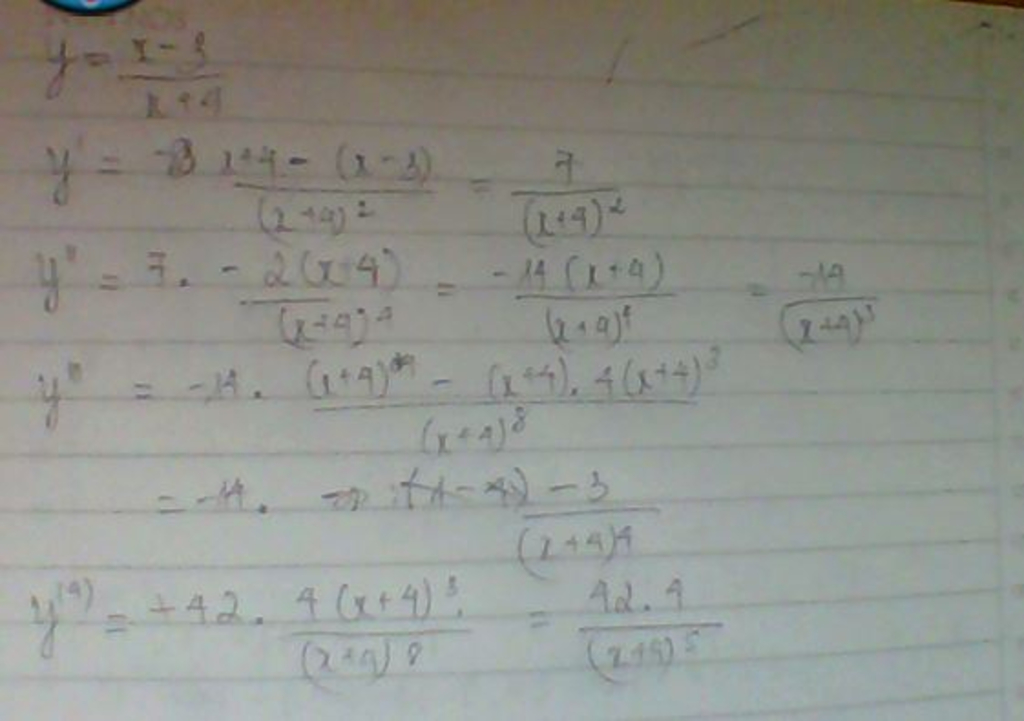 y = \frac{x-3}{x+4}
y' = \frac{x+4-(x-3)}{(x+4)^2} = \frac{7}{(x+4)^2}
y'' = 7 . - \frac{2(x+4)}{(x+4)^4} = \frac{-14(x+4)}{(x+4)^4} = \frac{-14}{(x+4)^3}
y''' = -14 . \frac{(x+4)^4 - (x+4) . 4(x+4)^3}{(x+4)^8}
= -14 . \frac{-3}{(x+4)^4}
y^{(4)} = +42 . \frac{4(x+4)^3 .}{(x+4)^8} = \frac{42 . 4}{(x+4)^5}